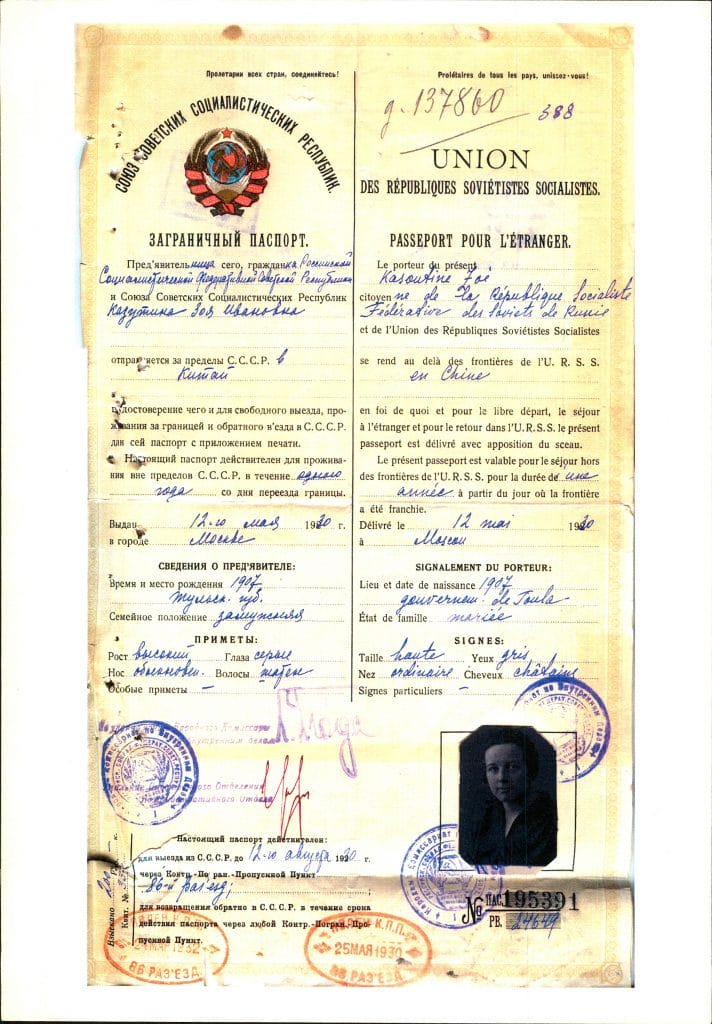 Пролетарии всех стран, соединяйтесь!
СОЮЗ СОВЕТСКИХ СОЦИАЛИСТИЧЕСКИХ РЕСПУБЛИК.
ЗАГРАНИЧНЫЙ ПАСПОРТ.
Пред'явительница сего, гражданка Российской
Социалистической Федеративной Советской Республики
и Союза Советских Социалистических Республик
Казутина Зоя Ивановна
отправляется за пределы С.С.С.Р. в
Китай
В удостоверение чего и для свободного выезда, про-
живания за границей и обратного в'езда в С.С.С.Р.
дан сей паспорт с приложением печати.
Настоящий паспорт действителен для прожива-
ния вне пределов С.С.С.Р. в течение одного
года со дня переезда границы.
Выдан 12-го мая 1930 г.
в городе Москве
СВЕДЕНИЯ О ПРЕД'ЯВИТЕЛЕ:
Время и место рождения 1907
Тульск. губ.
Семейное положение замужняя
ПРИМЕТЫ:
Рост высокий Глаза серые
Нос обыкновен. Волосы шатен
Особые приметы —
Народного Комиссара
Внутренних дел
Отделения
Административного Отдела
Настоящий паспорт действителен:
для выезда из С.С.С.Р. до 12-го августа 1930 г.
через Контр.-Погран.-Пропускной Пункт
86-й раз'езд,
для возвращения обратно в С.С.С.Р. в течение срока
действия паспорта через любой Контр.-Погран.-Про-
пускной Пункт.
Взыскано
Квит. №
К.П.П.
МАР 1932
86 РАЗ'ЕЗД
Prolétaires de tous les pays, unissez-vous!
g. 137860
388
UNION
DES RÉPUBLIQUES SOVIÉTISTES SOCIALISTES.
PASSEPORT POUR L'ÉTRANGER.
Le porteur du présent
Kasoutine Zoé
citoyenne de la République Socialiste
Fédérative des Soviets de Russie
et de l'Union des Républiques Soviétistes Socialistes
se rend au delà des frontières de l'U.R.S.S.
en Chine
en foi de quoi et pour le libre départ, le séjour
à l'étranger et pour le retour dans l'U.R.S.S. le présent
passeport est délivré avec apposition du sceau.
Le présent passeport est valable pour le séjour hors
des frontières de l'U.R.S.S. pour la durée de une
année à partir du jour où la frontière
a été franchie.
Délivré le 12 mai 1930
à Moscou
SIGNALEMENT DU PORTEUR:
Lieu et date de naissance 1907
gouvernem. de Toula
État de famille mariée
SIGNES:
Taille haute Yeux gris
Nez ordinaire Cheveux châtains
Signes particuliers —
№ ПАС. 195391
РВ. 24649
К.П.П.
25 МАЯ 1930
86 РАЗ'ЕЗД